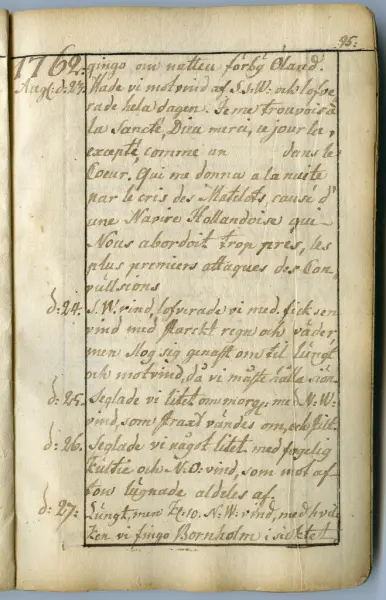 95:
1762. gingo om natten förbÿ Öland.
Aug: d: 23. Hade vi motvind af S.S.W. och lofve
rade hela dagen. Je me trouvois à
la Sancté, Dieu merci, ce jour la,
excepté, comme un dans le
Coeur. Qui me donna a la nuite
par le cris des Matelots, causé d'
une Navire Hollandoise qui
Nous abordoit trop pres, les
plus premiers attaques des Con,
vullsions
d: 24. S.W. vind, lofverade vi med. fick sen
vind med starckt regn och väder,
men slog sig genast om til lungt
och motvind, då vi måste hålla sjön.
d: 25. Seglade vi litet om morg: med N:W:
vind, som straxt vändes om, och
d: 26. Seglade vi någst litet med fogelig
Kultie och N.O. vind, som mot af
ton lugnade aldeles af.
d: 27: Lungt, men Kl: 10. N:W: vind, med hvil
ken vi fingo Bornholm i sicktet